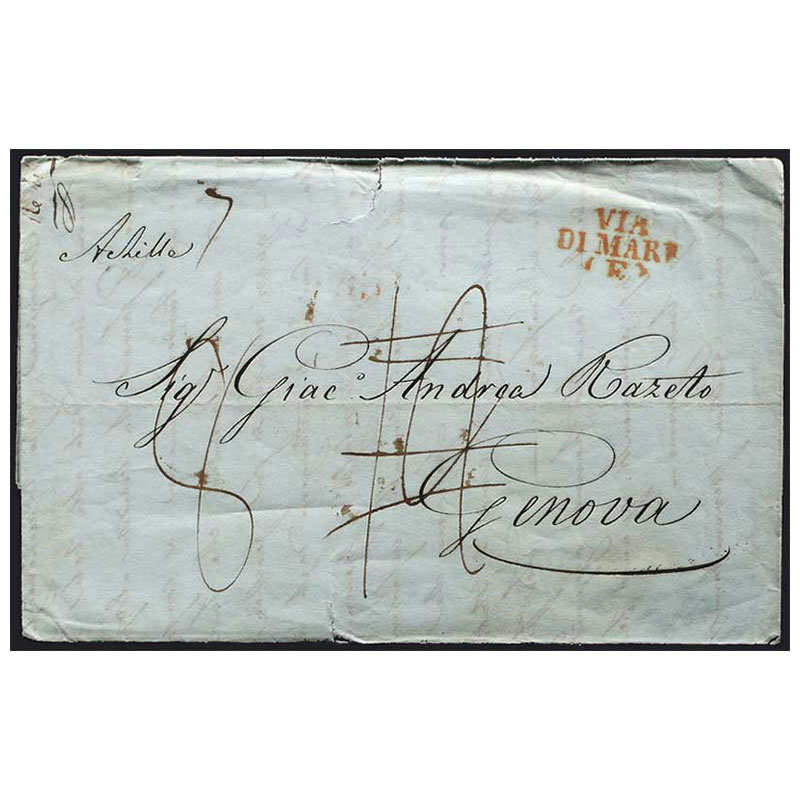 Achille
VIA
DI MARE
(E)
Sig.r Giac.o Andrea Razeto
Genova